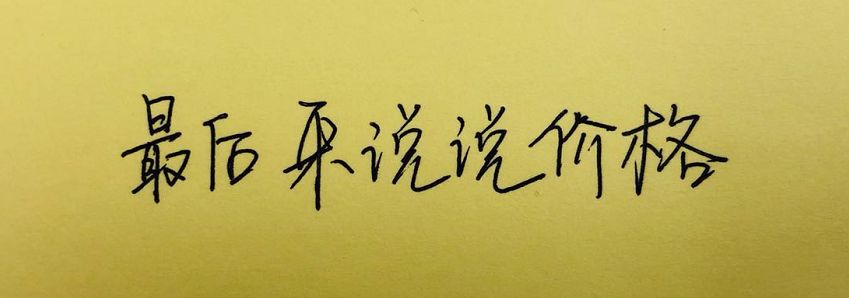 最后来说说价格